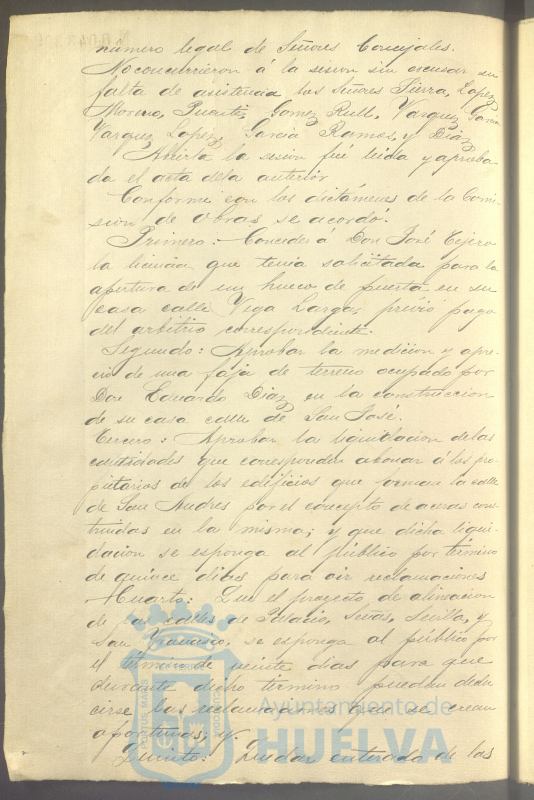 número legal de Señores Concejales.
No concurrieron á la sesion sin escusar su
falta de asistencia los Señores Tierra, Lopez
Moreno, Puente, Gomez Rull, Vazquez Garcia
Vazquez Lopez, Garcia Ramos, y Diaz
Abierta la sesion fué leida y aproba-
da el acta dela anterior
Conforme con los dictámenes de la Comi-
sion de obras se acordó:
Primero: Conceder á Don José Tejero
la licencia que tenia solicitada para la
apertura de un hueco de puerta en su
casa calle Vega Larga, previo pago
del arbitrio correspondiente.
Segundo: Aprobar la medicion y apre-
cio de una faja de terreno ocupado por
Don Eduardo Diaz en la construccion
de su casa calle de San José.
Tercero: Aprobar la liquidacion delas
cantidades que corresponden abonar á los pro-
pietarios de los edificios que forman la calle
de San Andres por el concepto de aceras cons-
truidas en la misma; y que dicha liqui-
dacion se esponga al público por término
de quince dias para oir reclamaciones
Cuarto: Que el proyecto de alineacion
de las calles de Palacio, Señas, Sevilla, y
San Francisco, se esponga al público por
el término de veinte dias para que
durante dicho término puedan dedu
cirse las reclamaciones que se crean
oportunas; y
Quinto: Quedar enterada de las
PORTUS MARIS
Ayuntamiento de
HUELVA